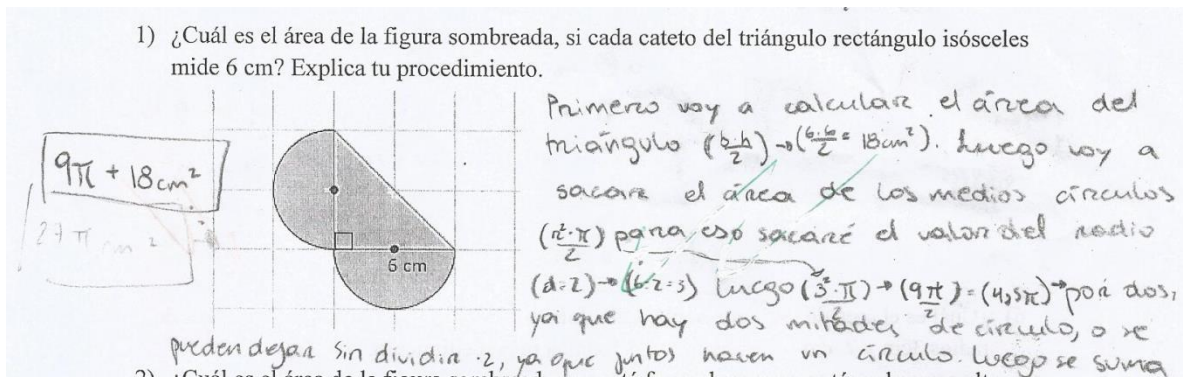 1) ¿Cuál es el área de la figura sombreada, si cada cateto del triángulo rectángulo isósceles
mide 6 cm? Explica tu procedimiento.
9π + 18 cm²
27 π cm²
6 cm
Primero voy a calcular el área del
triángulo (b·h/2) → (6·6/2 = 18cm²). Luego voy a
sacar el área de los medios círculos
(r²·π/2) para eso sacaré el valor del radio
(d:2) → (6:2=3) luego (3²·π/2) → (9π/2) = (4,5π) → por dos,
ya que hay dos mitades de círculo, o se
pueden dejar sin dividir :2, ya que juntos hacen un círculo. Luego se suma